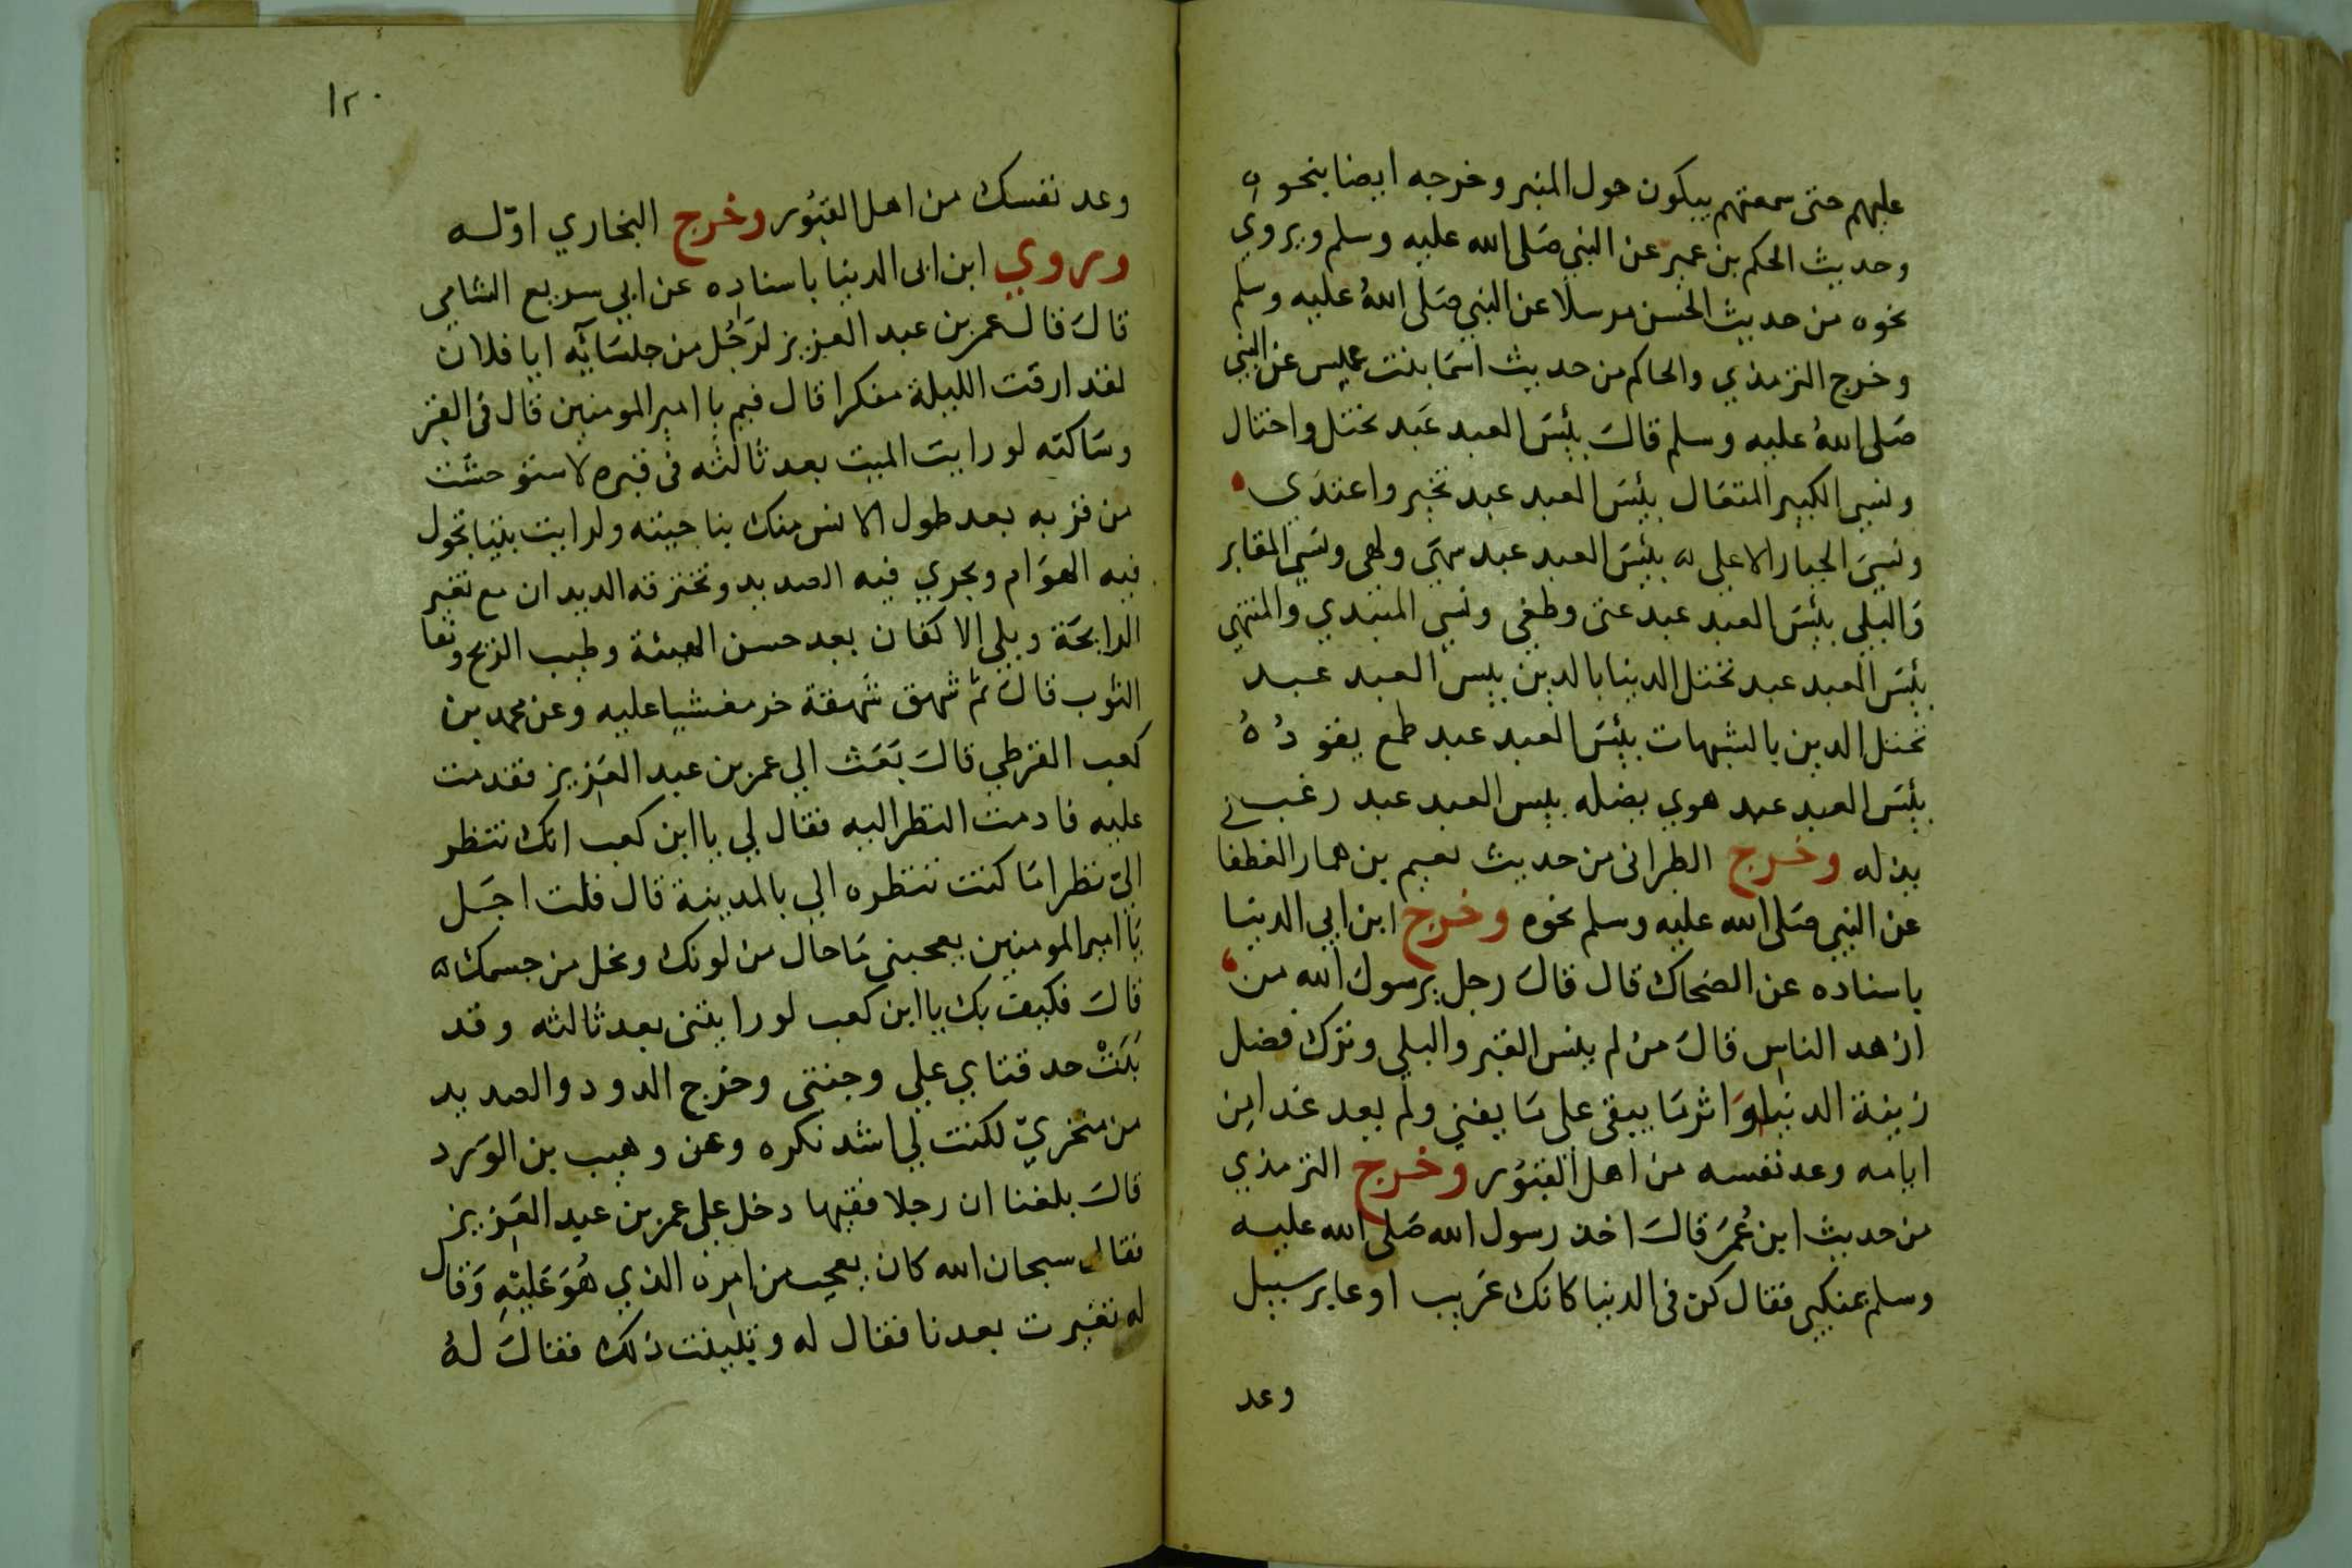 عليهم حتى سمعتهم يبكون حول المنبر وخرجه ايضا بنحوه
وحديث الحكم بن عمير عن النبي صَلى الله عليه وسلم ويروي
نحوه من حديث الحسن مرسلا عن النبي صَلى اللهُ عليه وسلم
وخرج الترمذي والحاكم من حديث اسمَا بنت عميس عن النبي
صَلى اللهُ عليه وسلم قالَ بئسَ العبد عَبد تختل واختال
ونسي الكبير المتعَال بئسَ العبد عبد تجبر واعتدَى
ونسيَ الجبار الاعلى بئسَ العبد عبد سهَى ولهى ونسَي المقابر
وَالبلى بئسَ العبد عبد عتى وطغى ونسي المبتدي والمنتهى
بئسَ العبد عبد تختل الدنيا بالدين بيس العبد عبد
تختل الدين بالشبهات بئسَ العبد عبد طمع يقودُهُ
بئسَ العبد عبد هوي يضله بيس العبد عبد رغب
يذله وخرج الطبرانى من حديث نعيم بن همار الغطفا
عن النبي صَلى الله عليه وسلم نحوه وخرج ابن ابي الدنيا
باسناده عن الضحاك قال قالَ رجل يرسولَ الله من
ازهد الناس قالَ من لم ينس القبر والبلى وترك فضل
زينة الدنيا وَاثر مَا يبقى على مَا يفنى ولم يعد غدا من
ايامه وعد نفسه من اهل القبُور وخرج الترمذي
من حديث ابن عُمَر قالَ اخذ رسول الله صَلى الله عليه
وسلم بمنكبى فقال كن فى الدنيا كانك غَريب او عابر سبيل
وعد
١٢٠
وعد نفسك من اهل القبُور وخرج البخاري اوّله
وروي ابن ابى الدنيا باسناده عن ابي سريع الشامي
قالَ قال عمر بن عبد العزيز لرَجُل من جلسَائه ايا فلان
لقد ارقت الليلة مفكرا قال فيم يا امير المومنين قال فى القبر
وسَاكنه لو رايت الميت بعد ثالثه فى قبره لاستوحشت
من قربه بعد طول الانس منك بناحيته ولرايت بيتا تجول
فيه الهوَام ويجري فيه الصديد وتخترقه الديدان مع تغير
الرايحَة وبلى الاكفان بعد حسن الهيئة وطيب الريح ونقا
الثوب قالَ ثم شهق شهقة خر مغشيا عليه وعن محمد بن
كعب القرظي قالَ بَعَث الي عمر بن عبد العَزيز فقدمت
عليه فادمت النظر اليه فقال لي يا ابن كعب انك تنظر
اليّ نظرا مَا كنت تنظره الي بالمدينة قال قلت اجَل
يَا امير المومنين يعجبنى مَا حال من لونك ونحل من جسمك
قالَ فكيف بك يا ابن كعب لو رايتنى بعد ثالثه وقد
بَدَتْ حدقتاي على وجنتى وخرج الدود والصديد
من منخريّ لكنت لي اشد نكره وعن وهيب بن الوَرد
قالَ بلغنا ان رجلا فقيها دخل على عمر بن عبد العَزيز
فقال سبحان الله كان يعجب من امره الذي هُوَ عَليْهِ وَقال
له تغيرت بعدنا فقال له وتبينت ذلك فقالَ لهُ